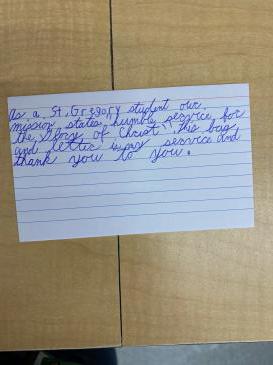 As a St. Gregory student our
mission states humble service for
the Glory of Christ", this bag
and letter is my service and
thank you to you.